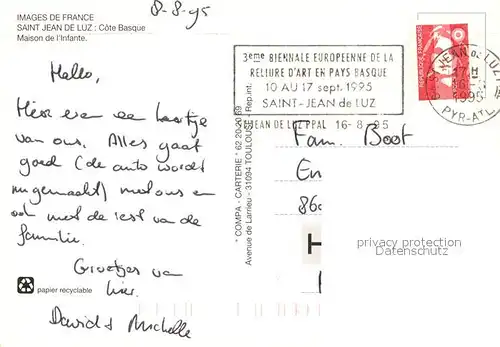 IMAGES DE FRANCE
SAINT JEAN DE LUZ : Côte Basque
Maison de l'Infante.
8-8-95
Hallo,
Hier even een kaartje
van ons. Alles gaat
goed (de auto wordt
nu gemaakt) met ons en
ook met de rest van de
familie.
Groetjes van
hier.
David & Michelle
papier recyclable
* COMPA - CARTERIE * 62 20 20 69
Avenue de Larrieu - 31094 TOULOUSE - Rep.int.
3eme BIENNALE EUROPEENNE DE LA
RELIURE D'ART EN PAYS BASQUE
10 AU 17 sept. 1995
SAINT-JEAN de LUZ
JEAN DE LUZ PPAL 16-8-95
ST JEAN de LUZ
17 H
16-8
1995
PYR-ATL
Fam. Boot
En
86
H
privacy protection
Datenschutz